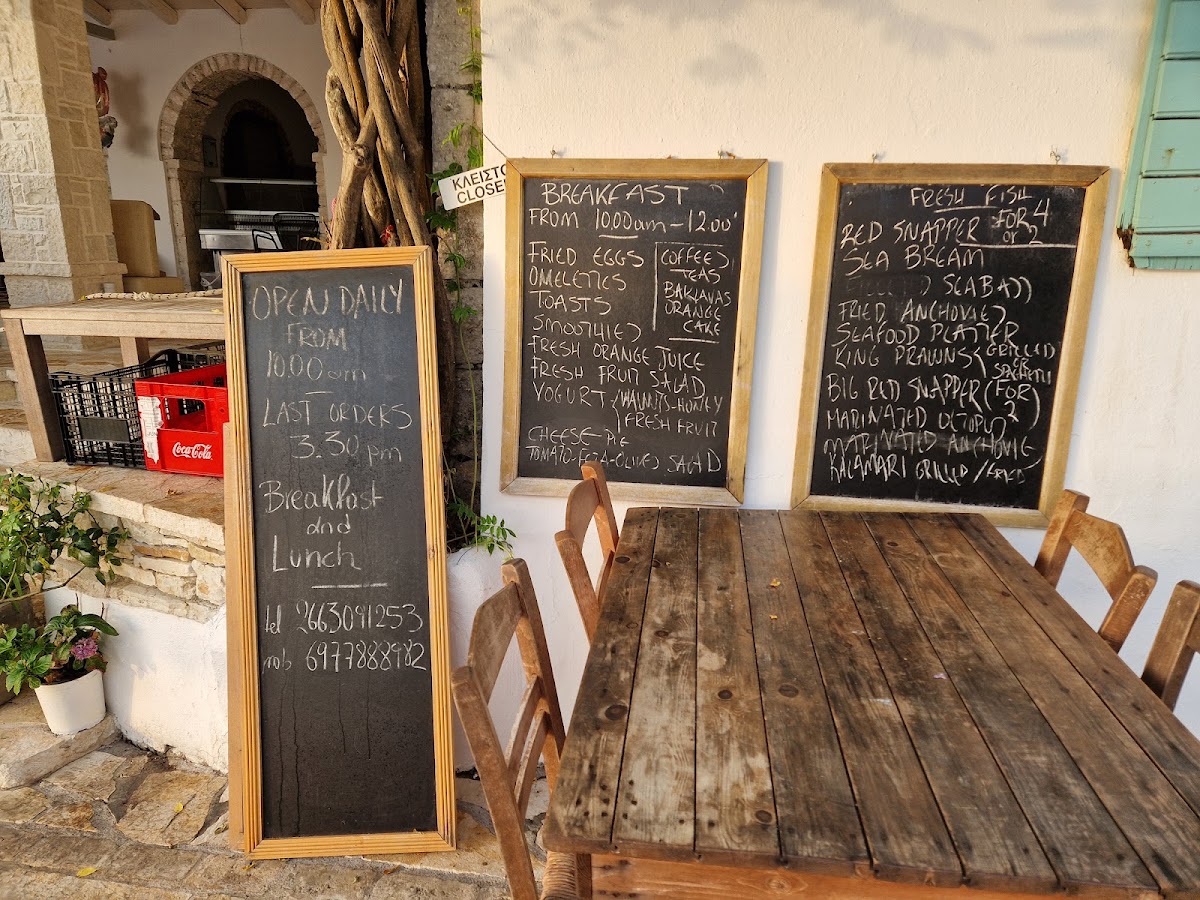 OPEN DAILY
FROM
10.00 am
LAST ORDERS
3.30 pm
Breakfast
and
Lunch
tel 2663091253
mob 6977888982
Coca-Cola
ΚΛΕΙΣΤΟ
CLOSE
BREAKFAST
FROM 10.00am - 12.00'
FRIED EGGS
OMELETTES
TOASTS
SMOOTHIES
FRESH ORANGE JUICE
FRESH FRUIT SALAD
YOGURT / WALNUTS-HONEY
FRESH FRUIT
CHEESE-PIE
TOMATO-FETA-OLIVES SALAD
COFFEES
TEAS
BAKLAVAS
ORANGE
CAKE
FRESH FISH
RED SNAPPER FOR 4
or 2
SEA BREAM
SEABASS
FRIED ANCHOVIES
SEAFOOD PLATTER
KING PRAWNS GRILLED
SPAGHETTI
BIG RED SNAPPER (FOR 2)
MARINATED OCTOPUS
MARINATED ANCHOVIE
KALAMARI GRILLED / FRIED